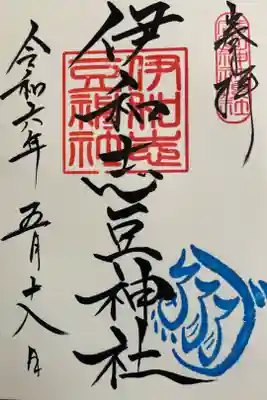 奉拝
伊和志豆神社
伊和志豆神社
令和六年 五月十八日